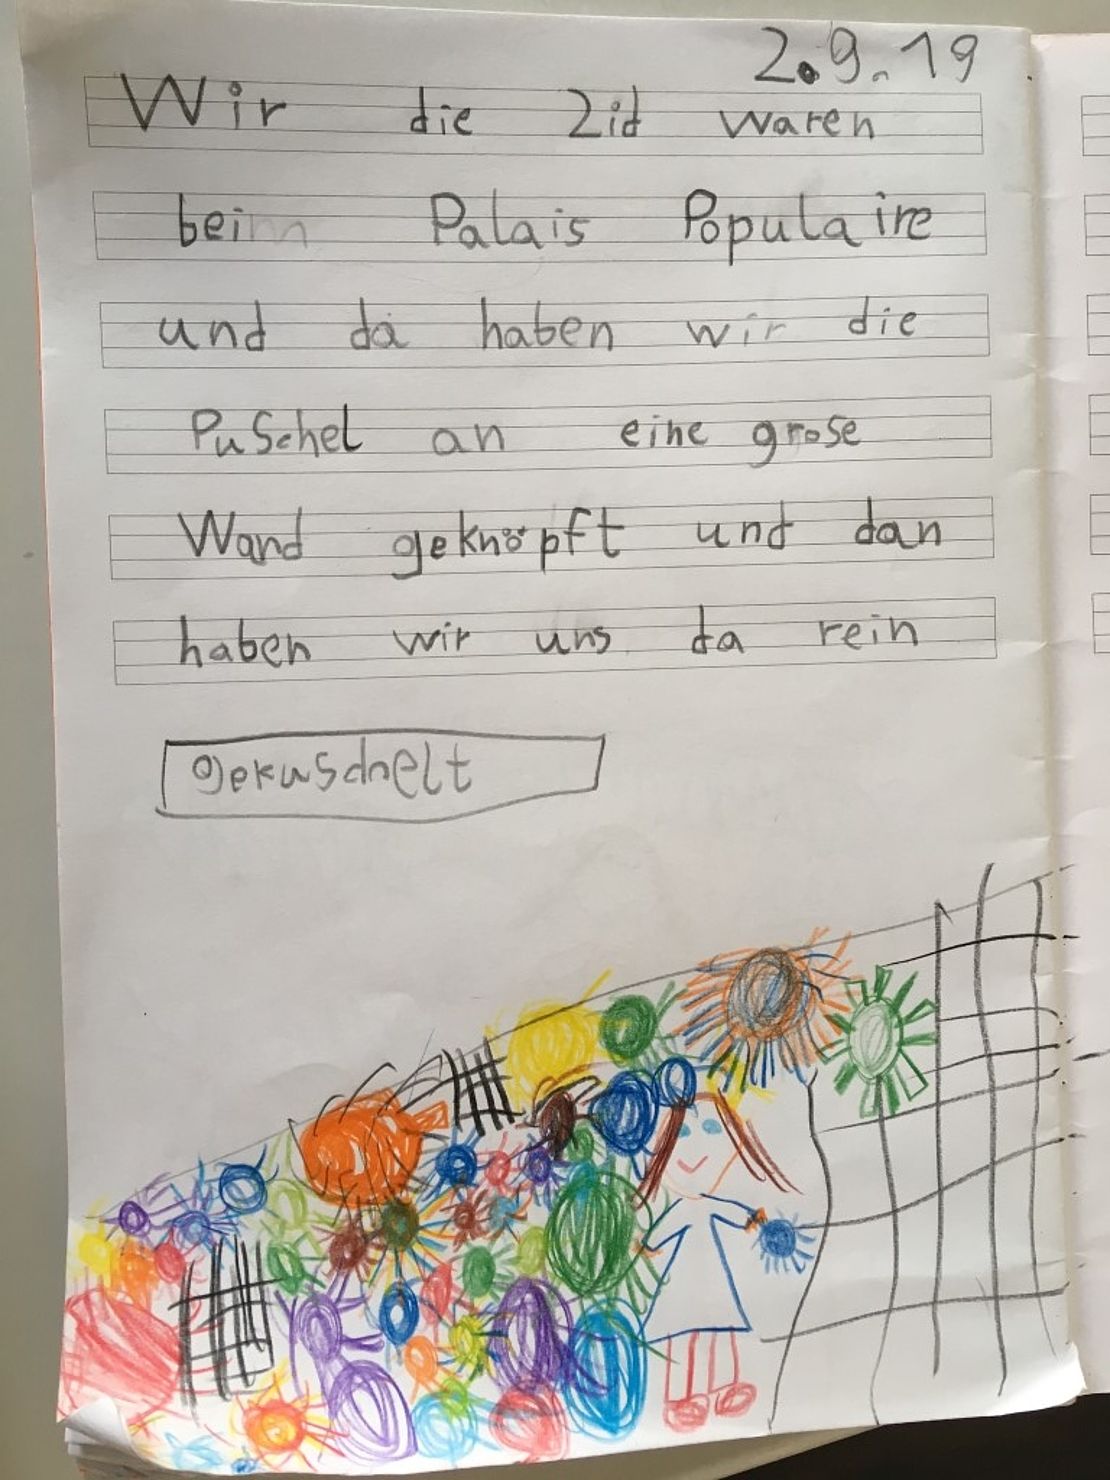 2.9.19
Wir die 2id waren
beim Palais Populaire
und da haben wir die
Puschel an eine grose
Wand geknöpft und dan
haben wir uns da rein
gekuschelt